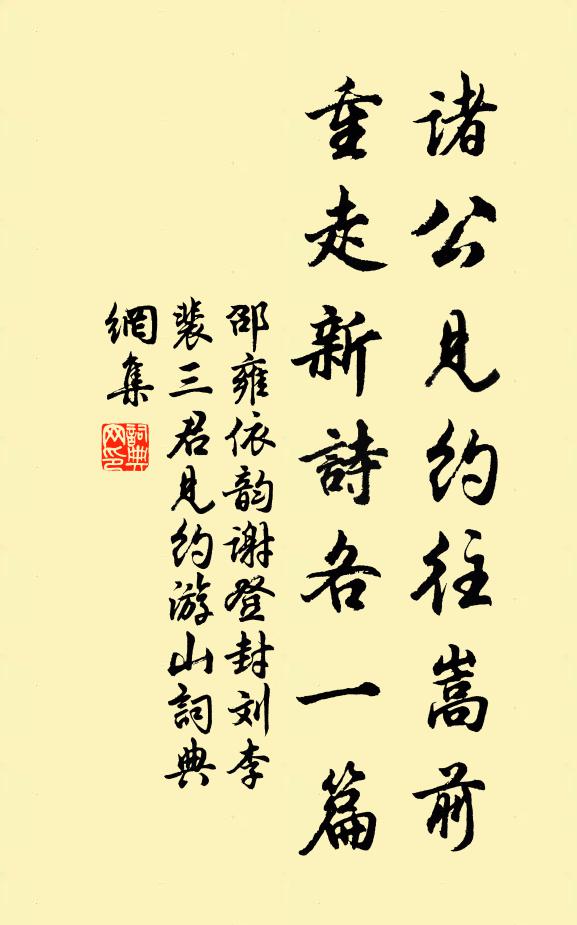 诸公见约往嵩前
重走新詩各一篇
邵雍依韵谢登封刘李
裴三君见约游山詞典
網集
詞典
网印